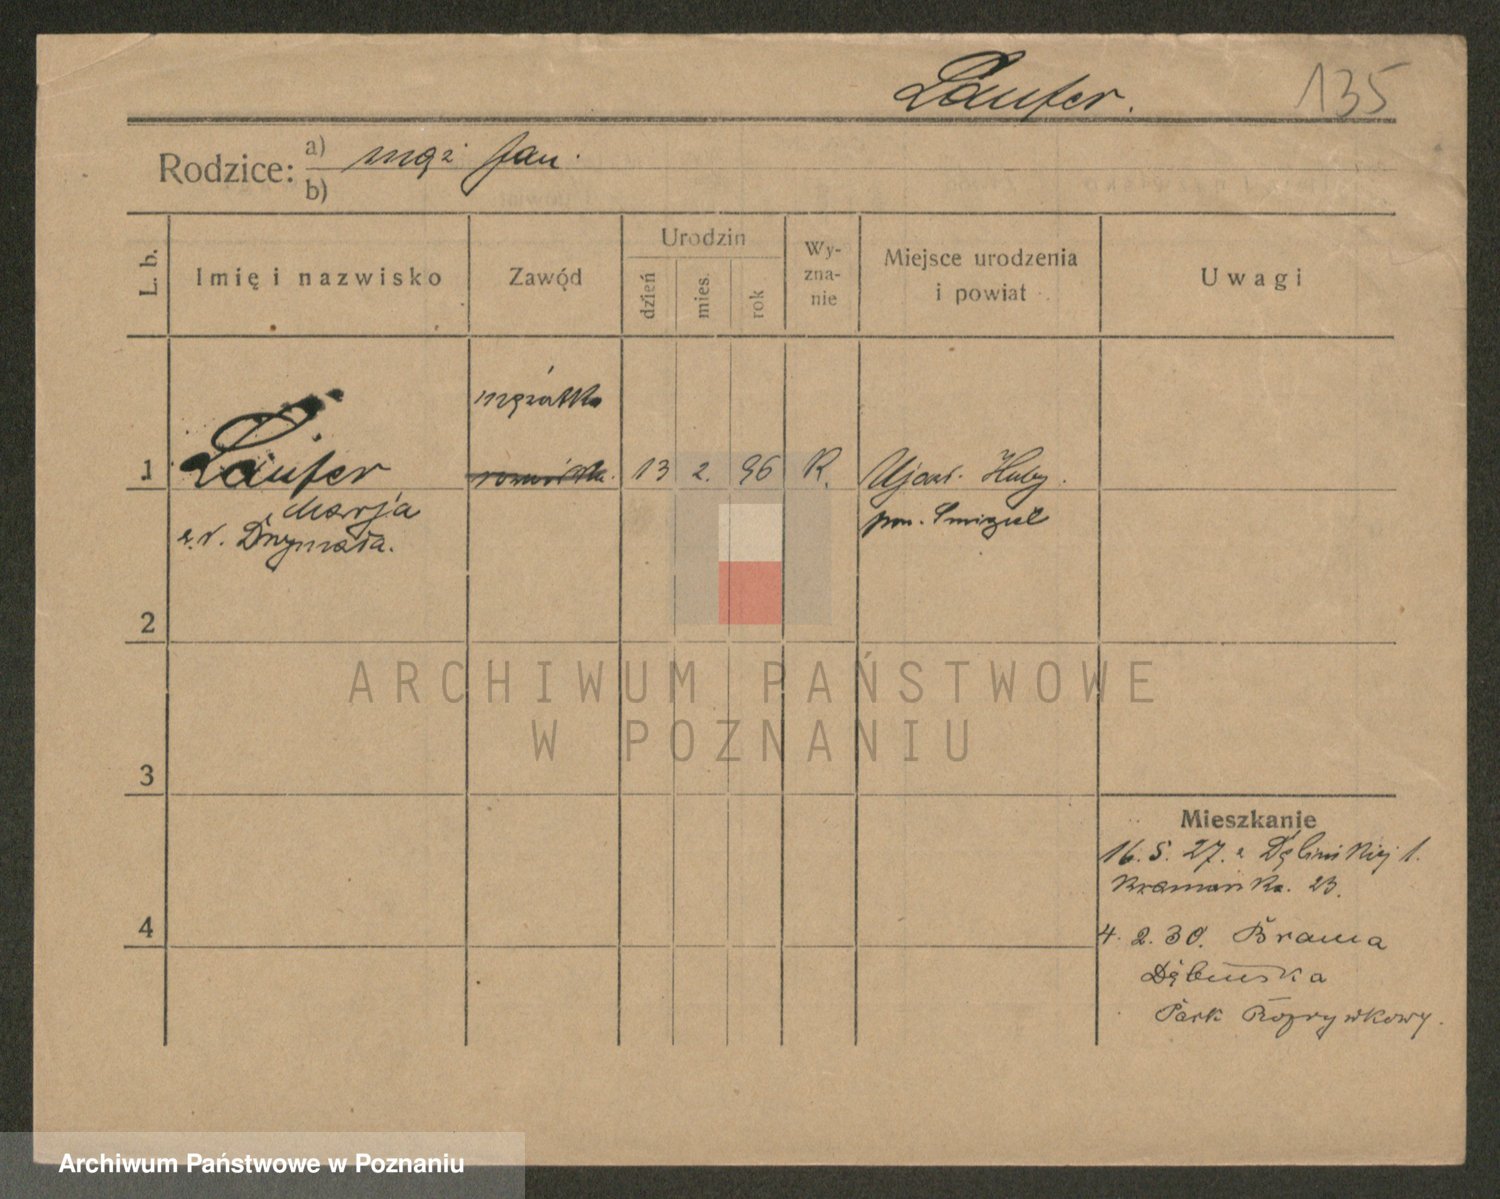 Läufer. 135
Rodzice: a) mąż Jan.
b)
L. b.
Imię i nazwisko
Zawód
Urodzin
dzień
mies.
rok
Wy-
zna-
nie
Miejsce urodzenia
i powiat
Uwagi
mężatka
1 Läufer 13 2. 96 R. Ujazd. Huby.
Marja pow. Śmigiel
z d. Drzymała.
2
3
4
ARCHIWUM PAŃSTWOWE
W POZNANIU
Mieszkanie
16. 5. 27. z Dębińskiej 1.
23.
4. 2. 30. Brama
Dębińska
Park Rozrywkowy.
Archiwum Państwowe w Poznaniu